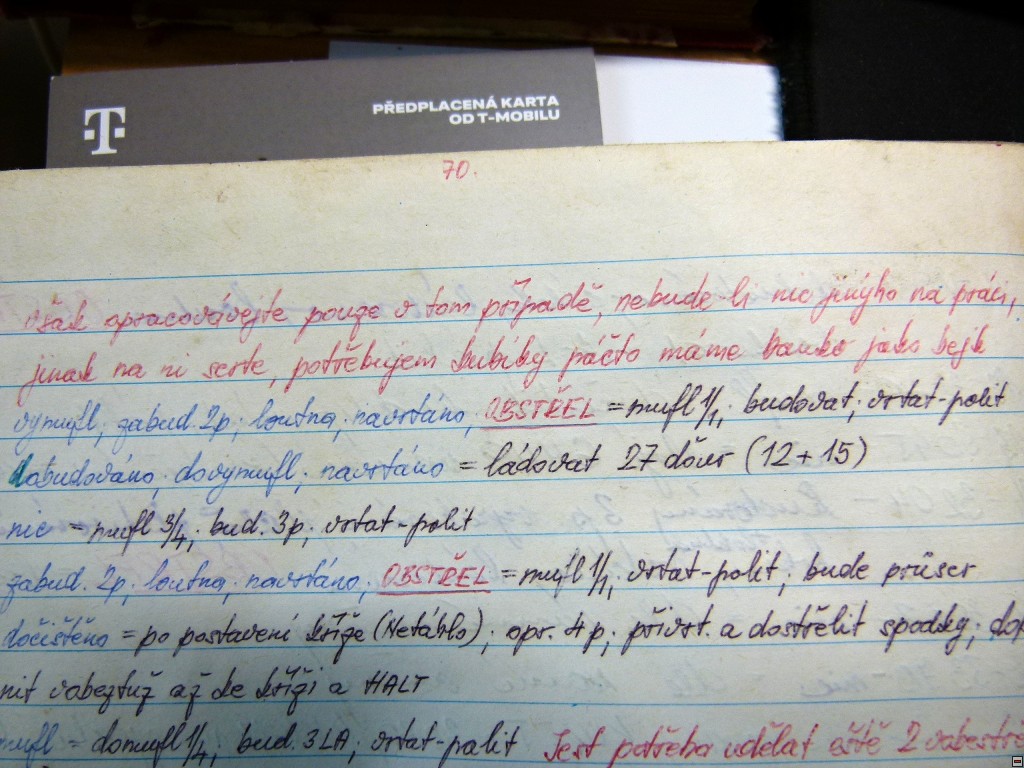 T
PŘEDPLACENÁ KARTA
OD T-MOBILU
70.
však opracovávejte pouze v tom případě, nebude-li nic jinýho na práci,
jinak na ni serte, potřebujem kubíky páčto máme banko jako bejk
vymufl; zabud. 2p; loutna; navrtáno, OBSTŘEL = mufl 1/1; budovat; vrtat-polit
dobudováno; dovymufl; navrtáno = ládovat 27 děvr (12+15)
nic = mufl 3/4; bud. 3p; vrtat-polit
zabud. 2p; loutna; navrtáno; OBSTŘEL = mufl 1/1; vrtat-polit; bude průser
dočištěno = po postavení kříže (Netáhlo); opr. 4p; přivrt. a dostřelit spodky; dop
nit až ke kříži a HALT
mufl = domufl 1/4; bud. 3LA; vrtat-palit Jest potřeba udělat eště 2